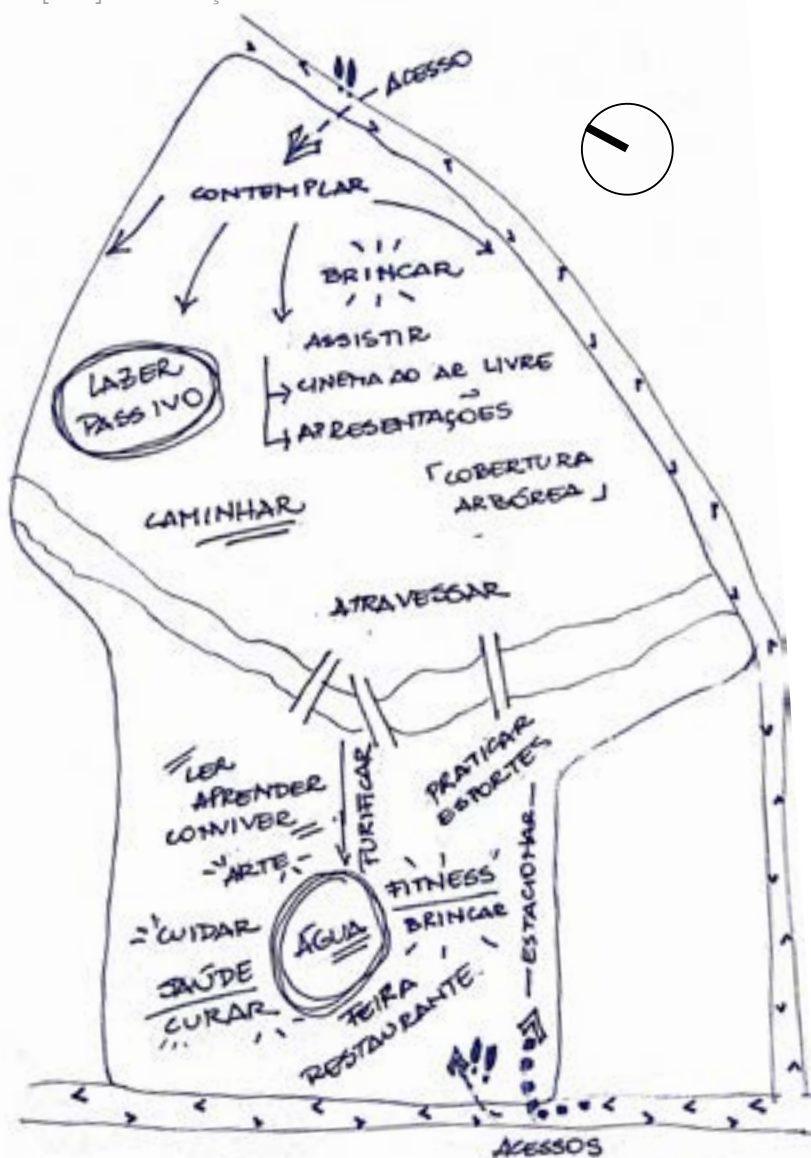 ACESSO
CONTEMPLAR
BRINCAR
ASSISTIR
CINEMA AO AR LIVRE
APRESENTAÇÕES
LAZER
PASSIVO
COBERTURA
ARBÓREA
CAMINHAR
ATRAVESSAR
LER
APRENDER
CONVIVER
ARTE
PURIFICAR
PRATICAR
ESPORTES
ESTACIONAR
FITNESS
BRINCAR
CUIDAR
ÁGUA
SAÚDE
CURAR
FEIRA
RESTAURANTE
ACESSOS